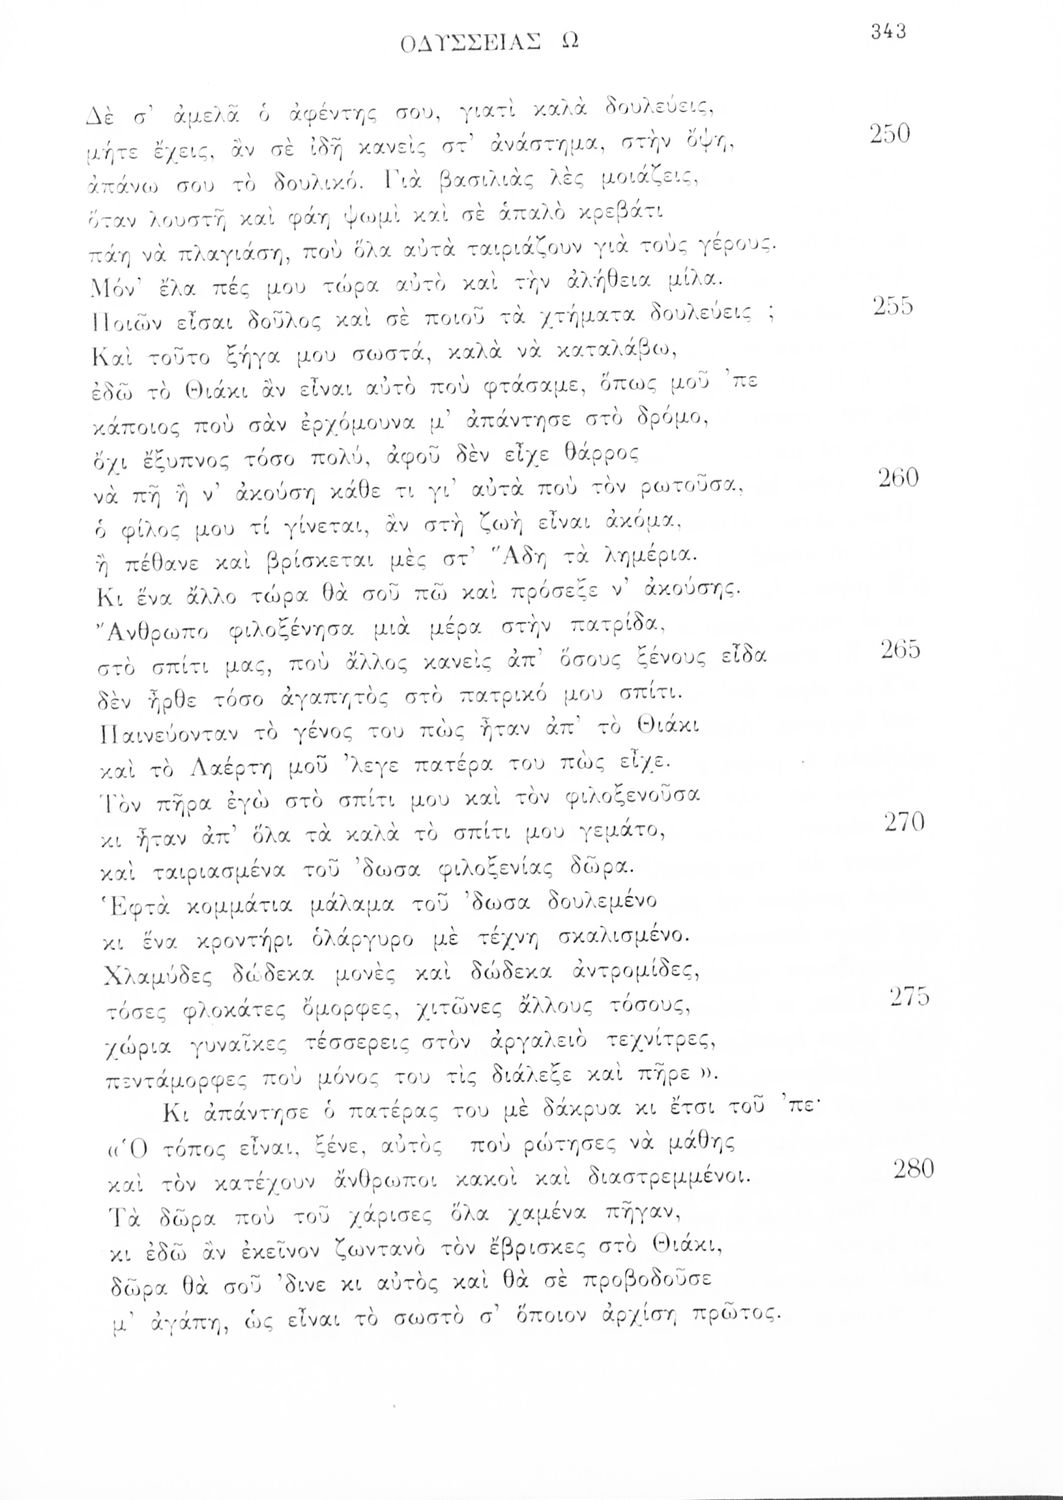 ΟΔΥΣΣΕΙΑΣ Ω 343
Δὲ σ᾿ ἀμελᾶ ὁ ἀφέντης σου, γιατὶ καλὰ δουλεύεις,
μήτε ἔχεις, ἂν σὲ ἰδῆ κανεὶς στ᾿ ἀνάστημα, στὴν ὄψη, 250
ἀπάνω σου τὸ δουλικό. Γιὰ βασιλιὰς λὲς μοιάζεις,
ὅταν λουστῆ καὶ φάη ψωμὶ καὶ σὲ ἁπαλὸ κρεβάτι
πάη νὰ πλαγιάση, ποὺ ὅλα αὐτὰ ταιριάζουν γιὰ τοὺς γέρους.
Μόν᾿ ἔλα πές μου τώρα αὐτὸ καὶ τὴν ἀλήθεια μίλα.
Ποιῶν εἶσαι δοῦλος καὶ σὲ ποιοῦ τὰ χτήματα δουλεύεις ; 255
Καὶ τοῦτο ξήγα μου σωστά, καλὰ νὰ καταλάβω,
ἐδῶ τὸ Θιάκι ἂν εἶναι αὐτὸ ποὺ φτάσαμε, ὅπως μοῦ ᾿πε
κάποιος ποὺ σὰν ἐρχόμουνα μ᾿ ἀπάντησε στὸ δρόμο,
ὄχι ἔξυπνος τόσο πολύ, ἀφοῦ δὲν εἶχε θάρρος
νὰ πῆ ἢ ν᾿ ἀκούση κάθε τι γι᾿ αὐτὰ ποὺ τὸν ρωτοῦσα, 260
ὁ φίλος μου τί γίνεται, ἂν στὴ ζωὴ εἶναι ἀκόμα,
ἢ πέθανε καὶ βρίσκεται μὲς στ᾿ Ἅδη τὰ λημέρια.
Κι ἕνα ἄλλο τώρα θὰ σοῦ πῶ καὶ πρόσεξε ν᾿ ἀκούσης.
Ἄνθρωπο φιλοξένησα μιὰ μέρα στὴν πατρίδα,
στὸ σπίτι μας, ποὺ ἄλλος κανεὶς ἀπ᾿ ὅσους ξένους εἶδα 265
δὲν ἦρθε τόσο ἀγαπητὸς στὸ πατρικό μου σπίτι.
Παινεύονταν τὸ γένος του πὼς ἦταν ἀπ᾿ τὸ Θιάκι
καὶ τὸ Λαέρτη μοῦ ᾿λεγε πατέρα του πὼς εἶχε.
Τὸν πῆρα ἐγὼ στὸ σπίτι μου καὶ τὸν φιλοξενοῦσα
κι ἦταν ἀπ᾿ ὅλα τὰ καλὰ τὸ σπίτι μου γεμάτο, 270
καὶ ταιριασμένα τοῦ ᾿δωσα φιλοξενίας δῶρα.
Ἑφτὰ κομμάτια μάλαμα τοῦ ᾿δωσα δουλεμένο
κι ἕνα κροντήρι ὁλάργυρο μὲ τέχνη σκαλισμένο.
Χλαμύδες δώδεκα μονὲς καὶ δώδεκα ἀντρομίδες,
τόσες φλοκάτες ὄμορφες, χιτῶνες ἄλλους τόσους, 275
χώρια γυναῖκες τέσσερεις στὸν ἀργαλειὸ τεχνίτρες,
πεντάμορφες ποὺ μόνος του τὶς διάλεξε καὶ πῆρε ».
Κι ἀπάντησε ὁ πατέρας του μὲ δάκρυα κι ἔτσι τοῦ ᾿πε·
«Ὁ τόπος εἶναι, ξένε, αὐτὸς ποὺ ρώτησες νὰ μάθης
καὶ τὸν κατέχουν ἄνθρωποι κακοὶ καὶ διαστρεμμένοι. 280
Τὰ δῶρα ποὺ τοῦ χάρισες ὅλα χαμένα πῆγαν,
κι ἐδῶ ἂν ἐκεῖνον ζωντανὸ τὸν ἔβρισκες στὸ Θιάκι,
δῶρα θὰ σοῦ ᾿δινε κι αὐτὸς καὶ θὰ σὲ προβοδοῦσε
μ᾿ ἀγάπη, ὡς εἶναι τὸ σωστὸ σ᾿ ὅποιον ἀρχίση πρῶτος.